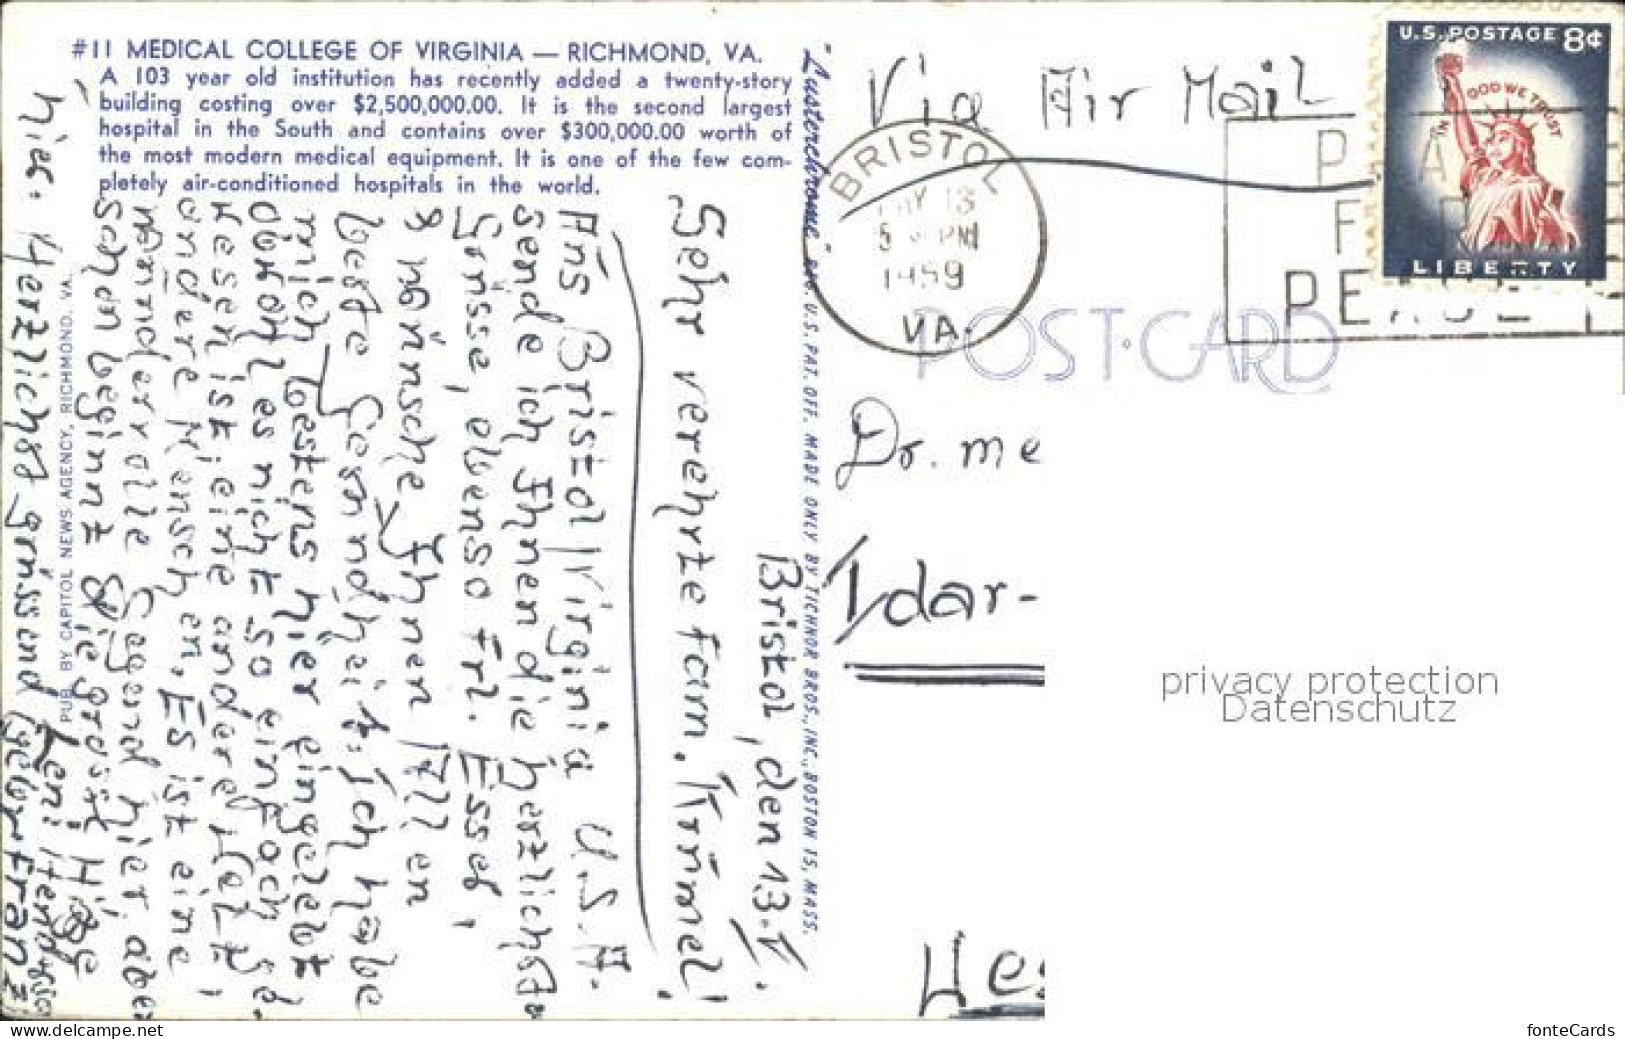 #11 MEDICAL COLLEGE OF VIRGINIA — RICHMOND, VA.
A 103 year old institution has recently added a twenty-story
building costing over $2,500,000.00. It is the second largest
hospital in the South and contains over $300,000.00 worth of
the most modern medical equipment. It is one of the few com-
pletely air-conditioned hospitals in the world.
Bristol, den 13. V.
Sehr verehrte Fam. Krümel!
Aus Bristol Virginia U.S.A.
sende ich Ihnen die herzlichsten
Grüsse, ebenso Frl. Esseb,
& wünsche Ihnen Allen
beste Gesundheit. Ich habe
mich bestens hier eingelebt
obwohl es nicht so einfach ge-
wesen ist; eine andere Welt,
andere Menschen. Es ist eine
wundervolle Gegend hier, aber
schon beginnt die grosse Hitze
hier. Herzlichst grüssend
Leni
gebr. Franz
PUB. BY CAPITOL NEWS AGENCY, RICHMOND, VA.
"Lusterchrome" REG. U.S. PAT. OFF. MADE ONLY BY TICHNOR BROS., INC., BOSTON 15, MASS.
Via Air Mail
U.S. POSTAGE 8¢
IN GOD WE TRUST
LIBERTY
BRISTOL
13
5 PM
1959
VA.
POST CARD
Dr. me
Idar-
Hes
privacy protection
Datenschutz
www.delcampe.net
fonteCards